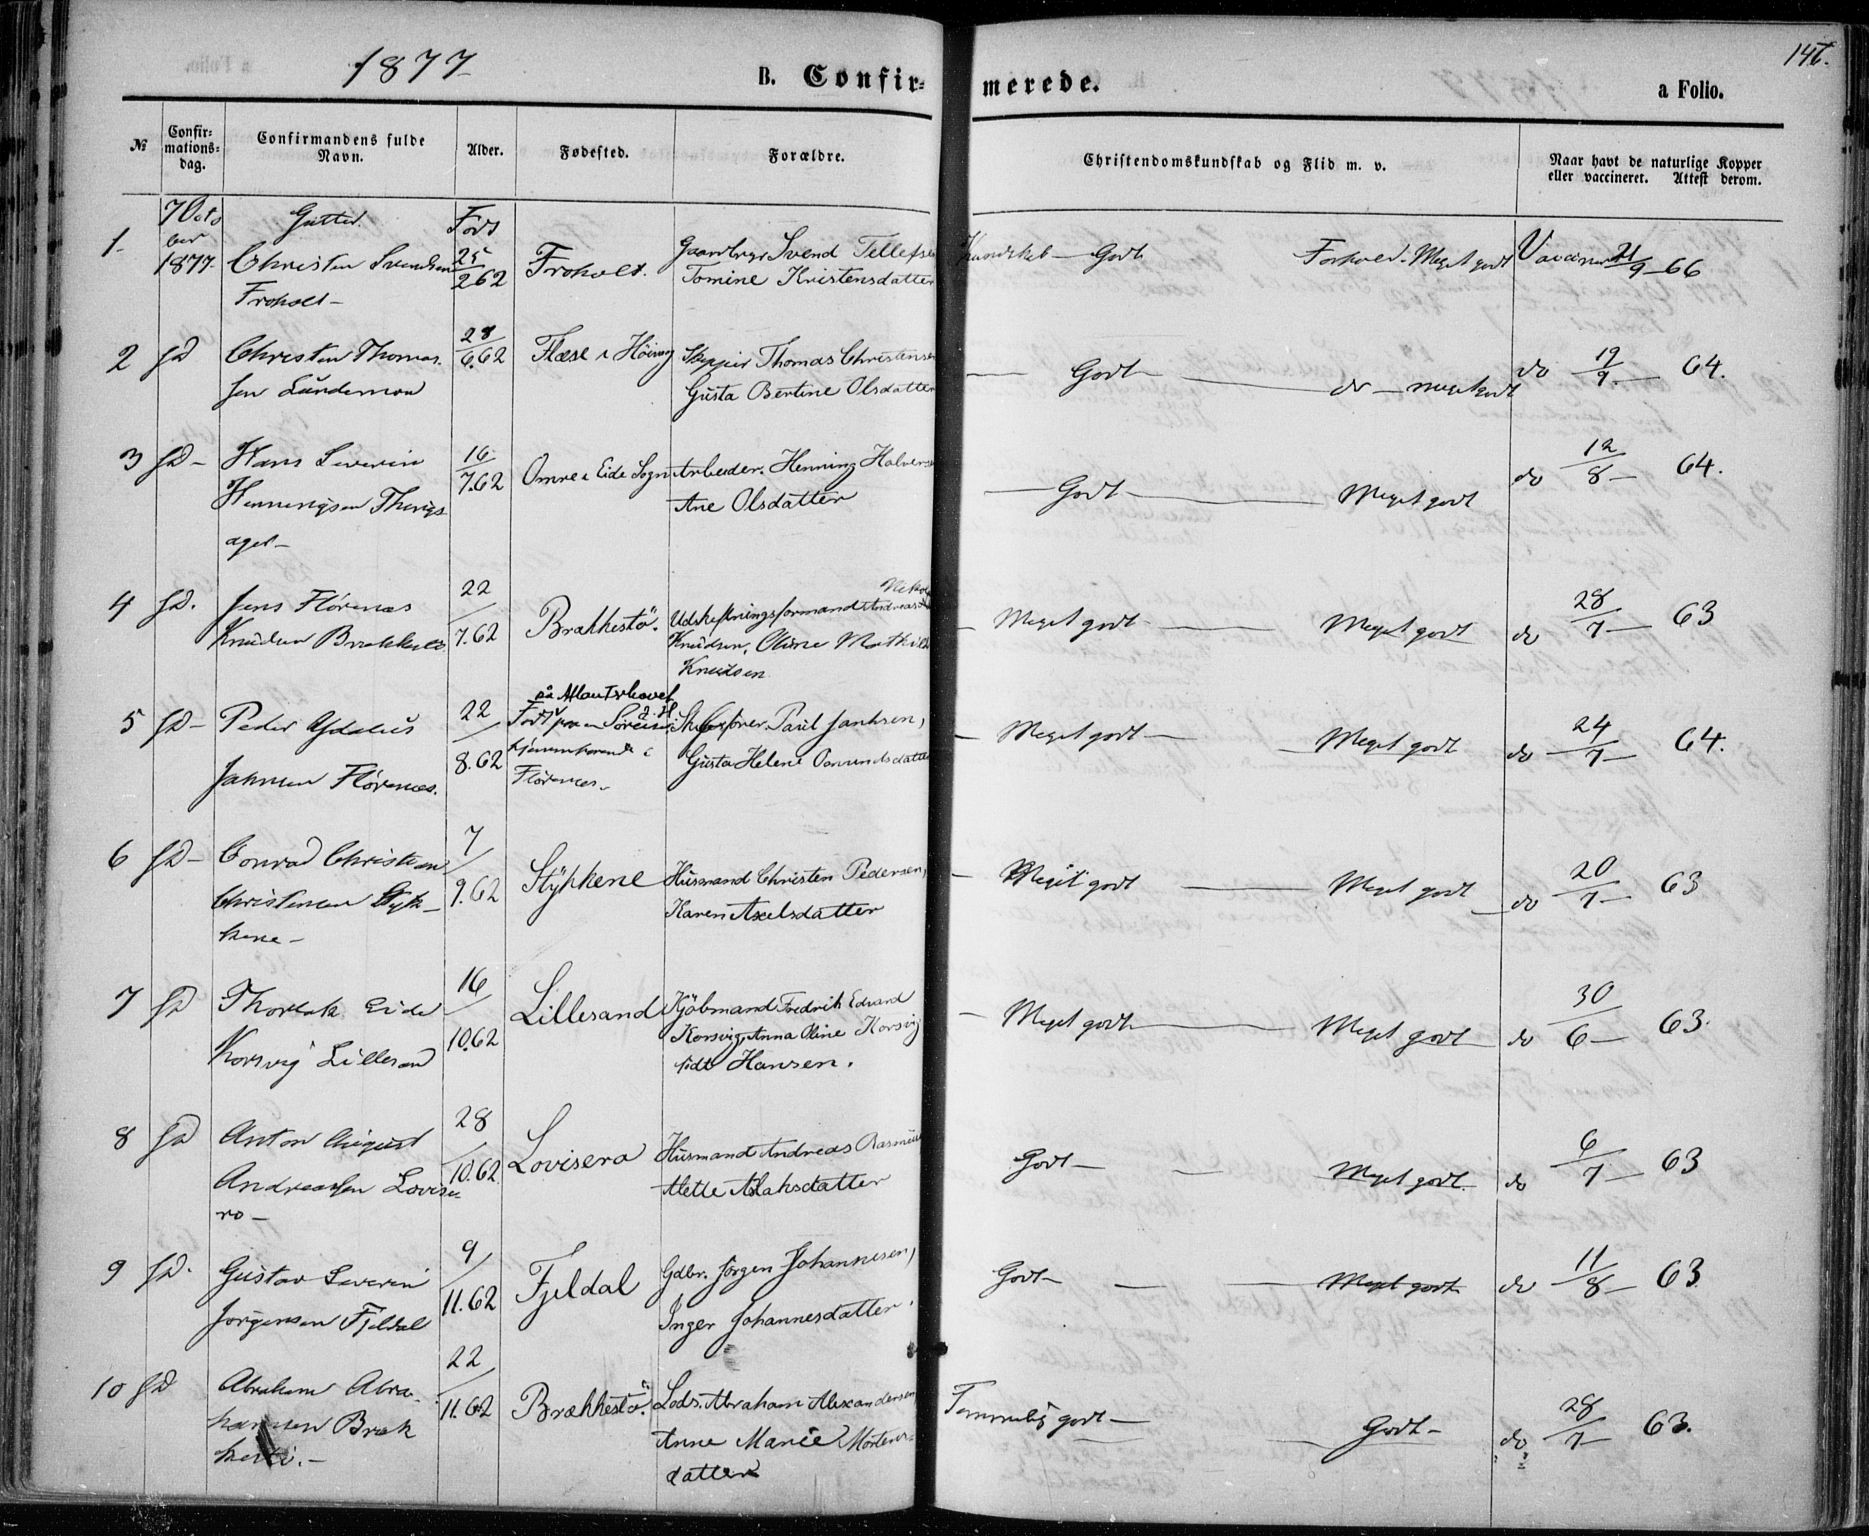 1877
B. Confir-
merede.
a Folio.
№
Confir-
mations-
dag.
Confirmandens fulde
Navn.
Alder.
Fødested.
Forældre.
Christendomskundskab og Flid m. v.
Naar havt de naturlige Kopper
eller vaccineret. Attest derom.
7 Octo
ber
1877
Gutter
Født
1
Christen Svendsen
Froholt
25/2 62
Froholt.
Gaardbrgr Svend Tellefsen
Tomine Kristensdatter
Kundskab Godt
Forhold. Meget godt
Vaccineret 21/9 66
2
do
Christen Thomas
sen Lundemoe
28/6.62
Flæse i Höivaag
Skipper Thomas Christensen
Gusta Bertine Olsdatter
Godt
do meget godt
do 19/9 64.
3
do
Hans Severin
Henningsen Things
aget
16/7.62
Omre i Eide Sogn
Arbeider. Henning Halvorsen
Ane Olsdatter
Godt
Meget godt
do 12/8 64.
4
do.
Jens Flörenæs
Knudsen Brækkestö
22/7.62
Brækkestö.
Udskiftningsformand Andreas Nikolai
Knudsen, Oline Mathilde
Knudsen
Meget godt
Meget godt
do 28/7 63
5
do
Peder
Jahnsen Flörenæs.
22/8.62
på Atlanterhavet
Födt paa en Söreise,
hjemmehørende i
Flörenæs.
Skibsförer. Paul Jahnsen,
Gusta Helene Omundsdatter
Meget godt
Meget godt
do 24/7 64.
6
do
Conrad Christian
Christensen Styk-
kene
7/9.62
Stykkene
Husmand Christen Pedersen,
Karen Axelsdatter
Meget godt
Meget godt
do 20/7 63
7
do
Thorlak Eide
Korsvig Lillesand
16/10.62
Lillesand
Kjöbmand Fredrik Edvard
Korsvig, Anna Oline Korsvig
född Hansen.
Meget godt
Meget godt
do 30/6 63.
8
do
Anton August
Andreassen Lovise
ro
28/10.62
Lovisero
Husmand Andreas Rasmussen
Mette Aslaksdatter
Godt
Meget godt.
do 6/7 63
9
do.
Gustav Severin
Jörgensen Fjeldal
9/11.62
Fjeldal
Gdbr. Jörgen Johannesen,
Inger Johannesdatter.
Godt
Meget godt
do 11/8 63
10
do
Abraham Abra-
hamsen Bræk
kestö.
22/11.62
Brækkestö.
Lods. Abraham Alexandersen
Anne Marie Mortens-
datter
Temmelig godt
Godt
do 28/7 63.